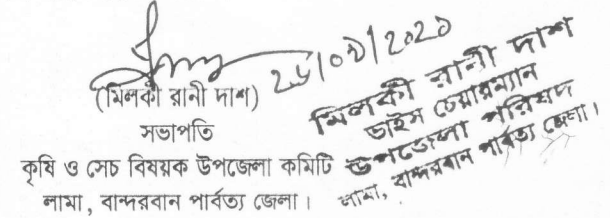 ২৬/০৯/২০২১
(মিলকী রানী দাশ)
সভাপতি
কৃষি ও সেচ বিষয়ক উপজেলা কমিটি
লামা, বান্দরবান পার্বত্য জেলা।
মিলকী রানী দাশ
ভাইস চেয়ারম্যান
উপজেলা পরিষদ
লামা, বান্দরবান পার্বত্য জেলা।